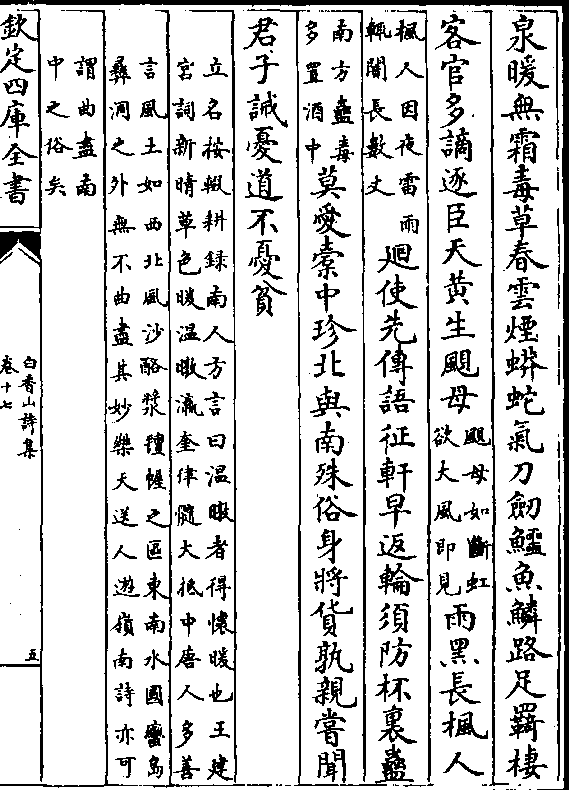 泉暖無霜毒草春雲煙蟒蛇氣刀劒鱷魚鱗路足羇棲
客官多謫逐臣天黃生颶母
颶母如斷虹
欲大風即見
雨黑長楓人
楓人因夜雷雨
輒闇長數丈
迴使先傳語征軒早返輪須防杯裏蠱
南方蠱毒
多置酒中
莫愛橐中珍北與南殊俗身將貨孰親嘗聞
君子誡憂道不憂貧
立名按輟耕録南人方言曰温暾者得懷暖也王建
宫詞新晴草色暖温暾瀛奎律髓大抵中唐人多善
言風土如西北風沙酪漿氊幄之區東南水國蠻島
彛洞之外無不曲盡其妙樂天送人遊嶺南詩亦可
謂曲盡南
中之俗矣
欽定四庫全書
白香山詩集
卷十七
五